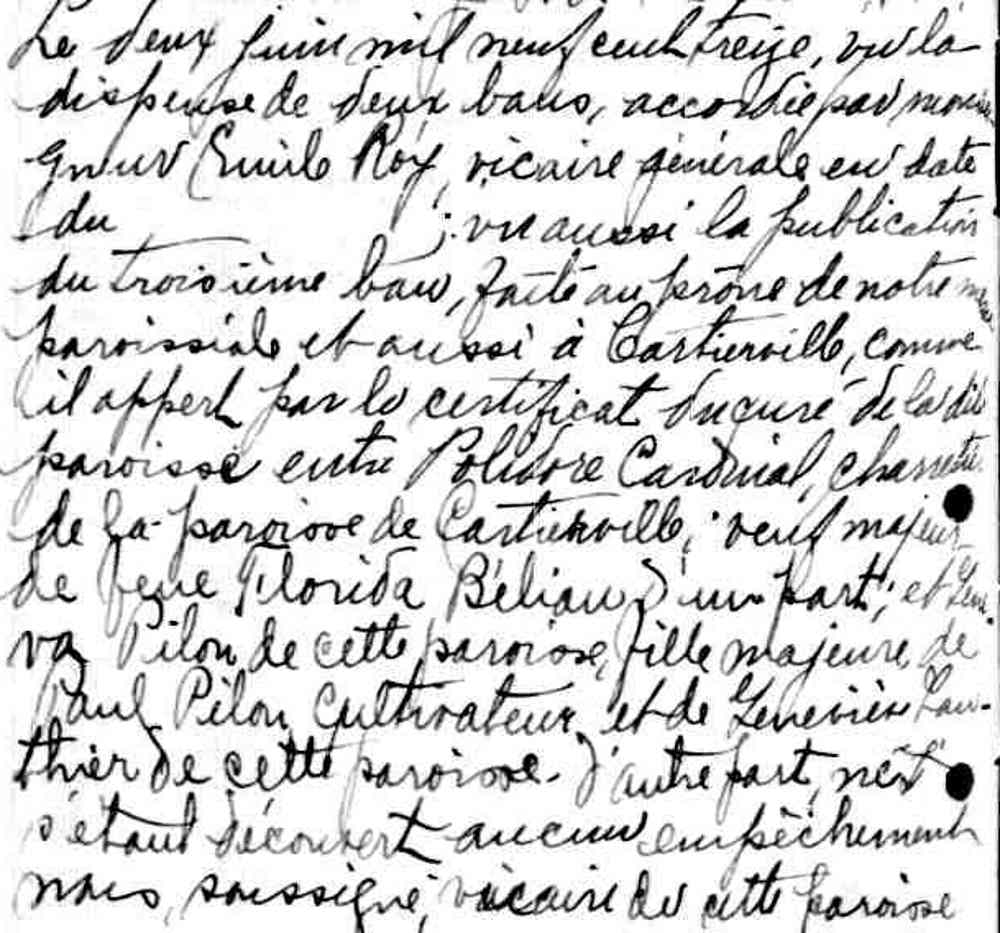 Le deux juin mil neuf cent treize, vu la
dispense de deux bans, accordée par monsei
gneur Emile Roy, vicaire générale en date
du ; vu aussi la publication
du troisième ban, faite au prône de notre messe
paroissiale et aussi à Cartierville, comme
il appert par le certificat du curé de la dite
paroisse entre Polidore Cardinal, charretier
de la paroisse de Cartierville, veuf majeur
de feue Florida Bélian d'un part; et Gene
va Pilon de cette paroisse, fille majeure de
Paul Pilon cultivateur, et de Geneviève Lau-
thier de cette paroisse. d'autre part, n'est
s'étant découvert aucun empêchement
nous, soussigné, vicaire de cette paroisse